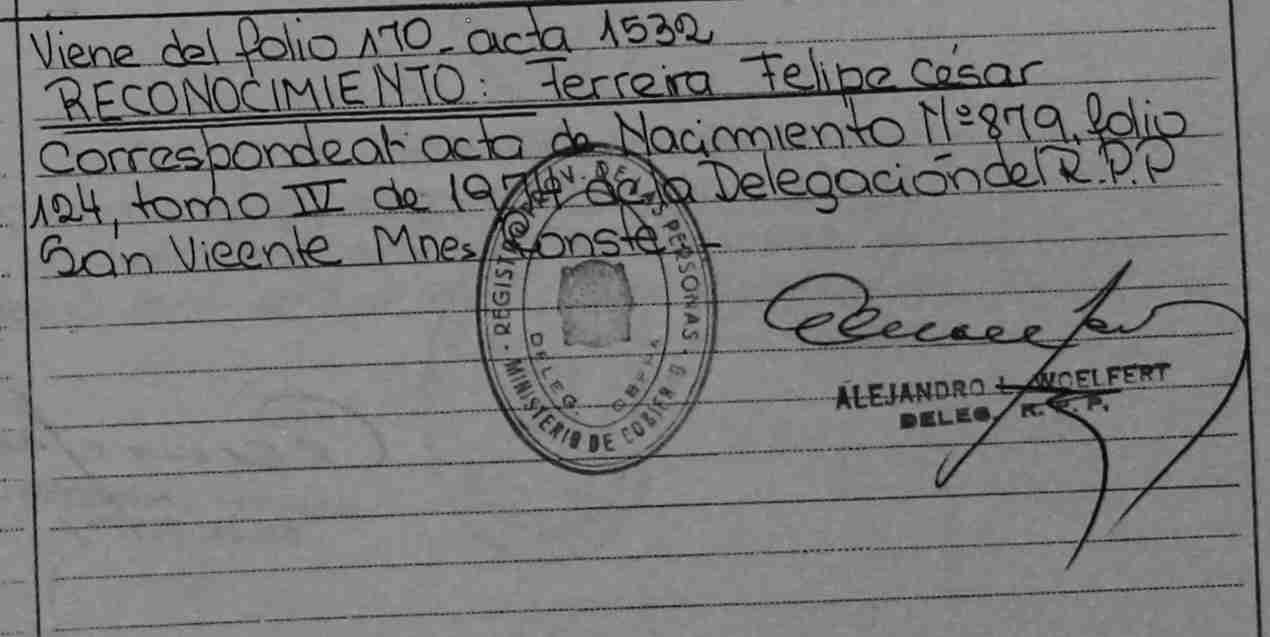 Viene del folio 170_ acta 1532
RECONOCIMIENTO: Ferreira Felipe César
Corresponde al acta de Nacimiento Nº 879, folio
124, tomo IV de 197 de la Delegación del R.P.P
San Vicente Mnes Conste
REGISTRO PROV. DE LAS PERSONAS
DELEG. OBERA
MINISTERIO DE GOBIERNO
ALEJANDRO L. WOELFERT
DELEG. R. P. P.